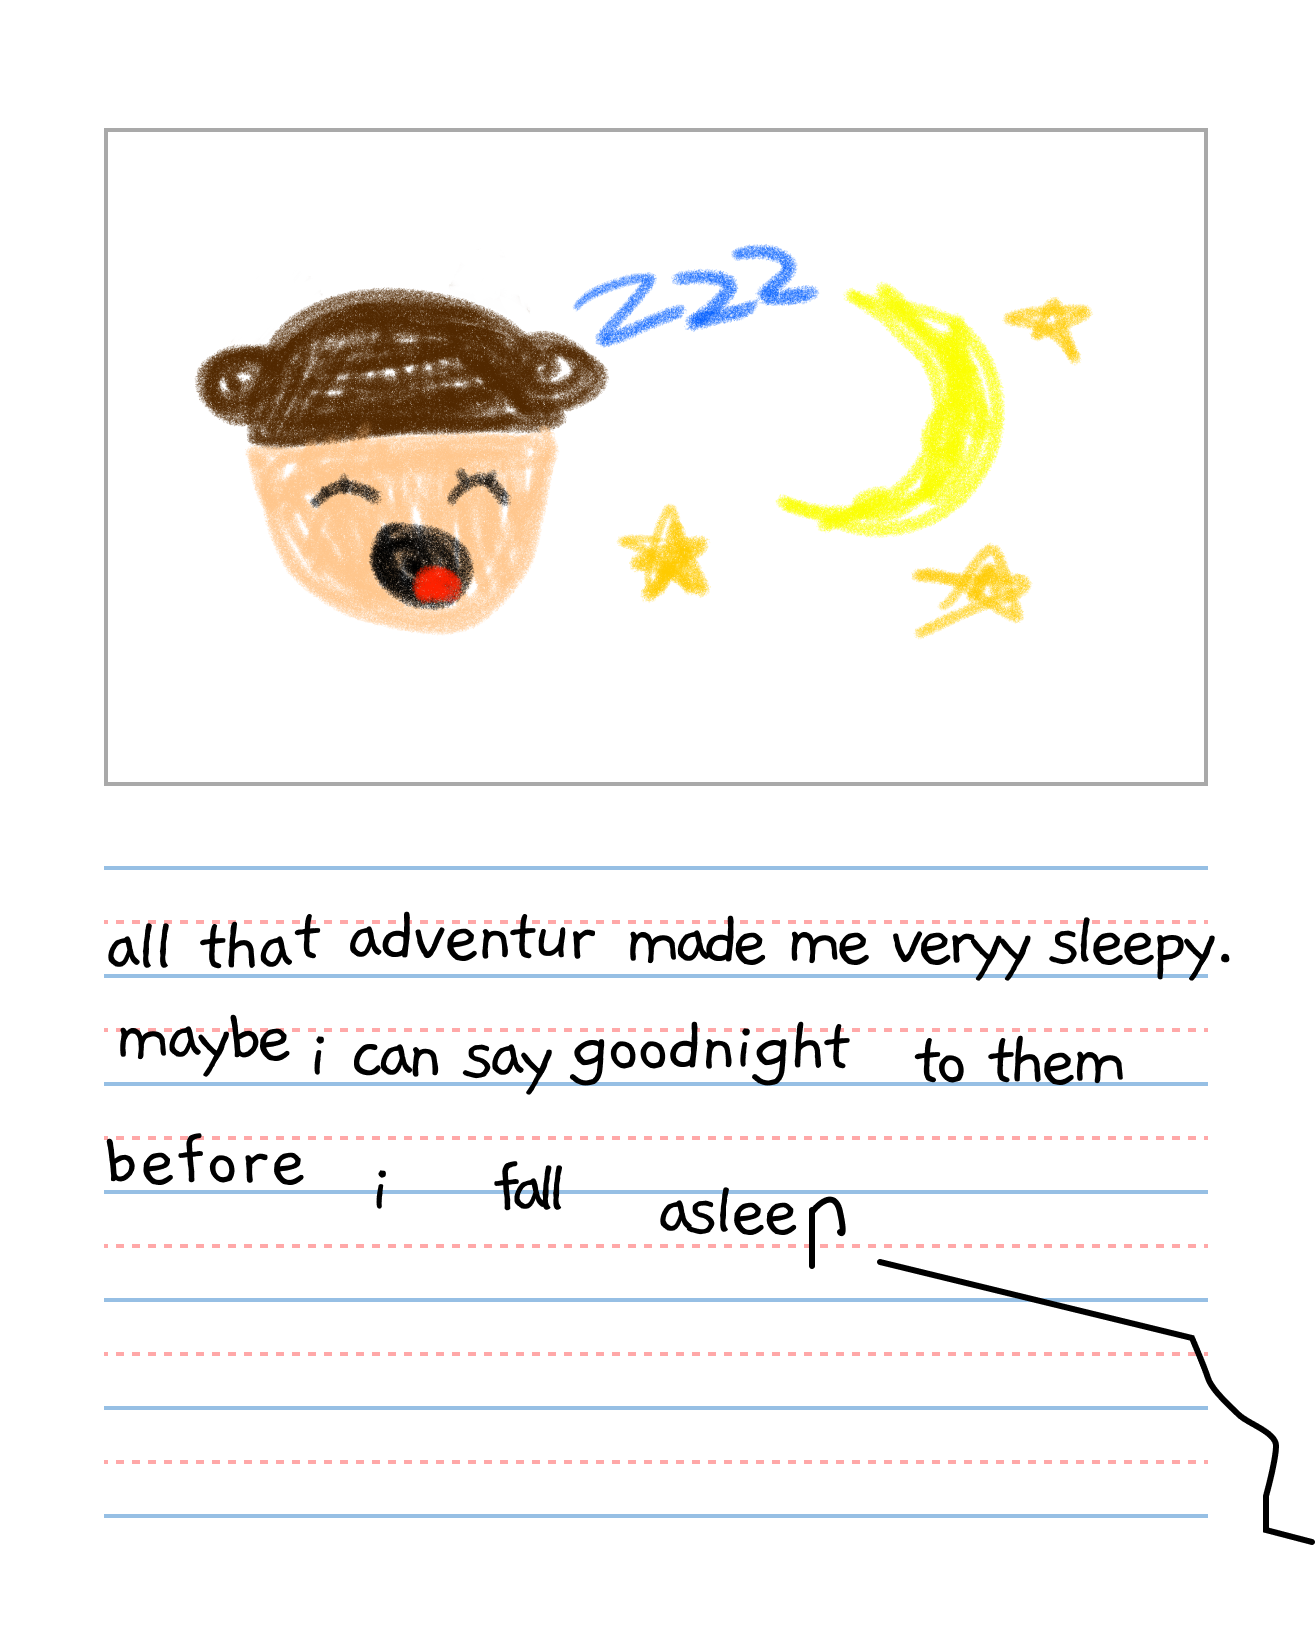 zzz
all that adventur made me veryy sleepy.
maybe i can say goodnight to them
before i fall asleep